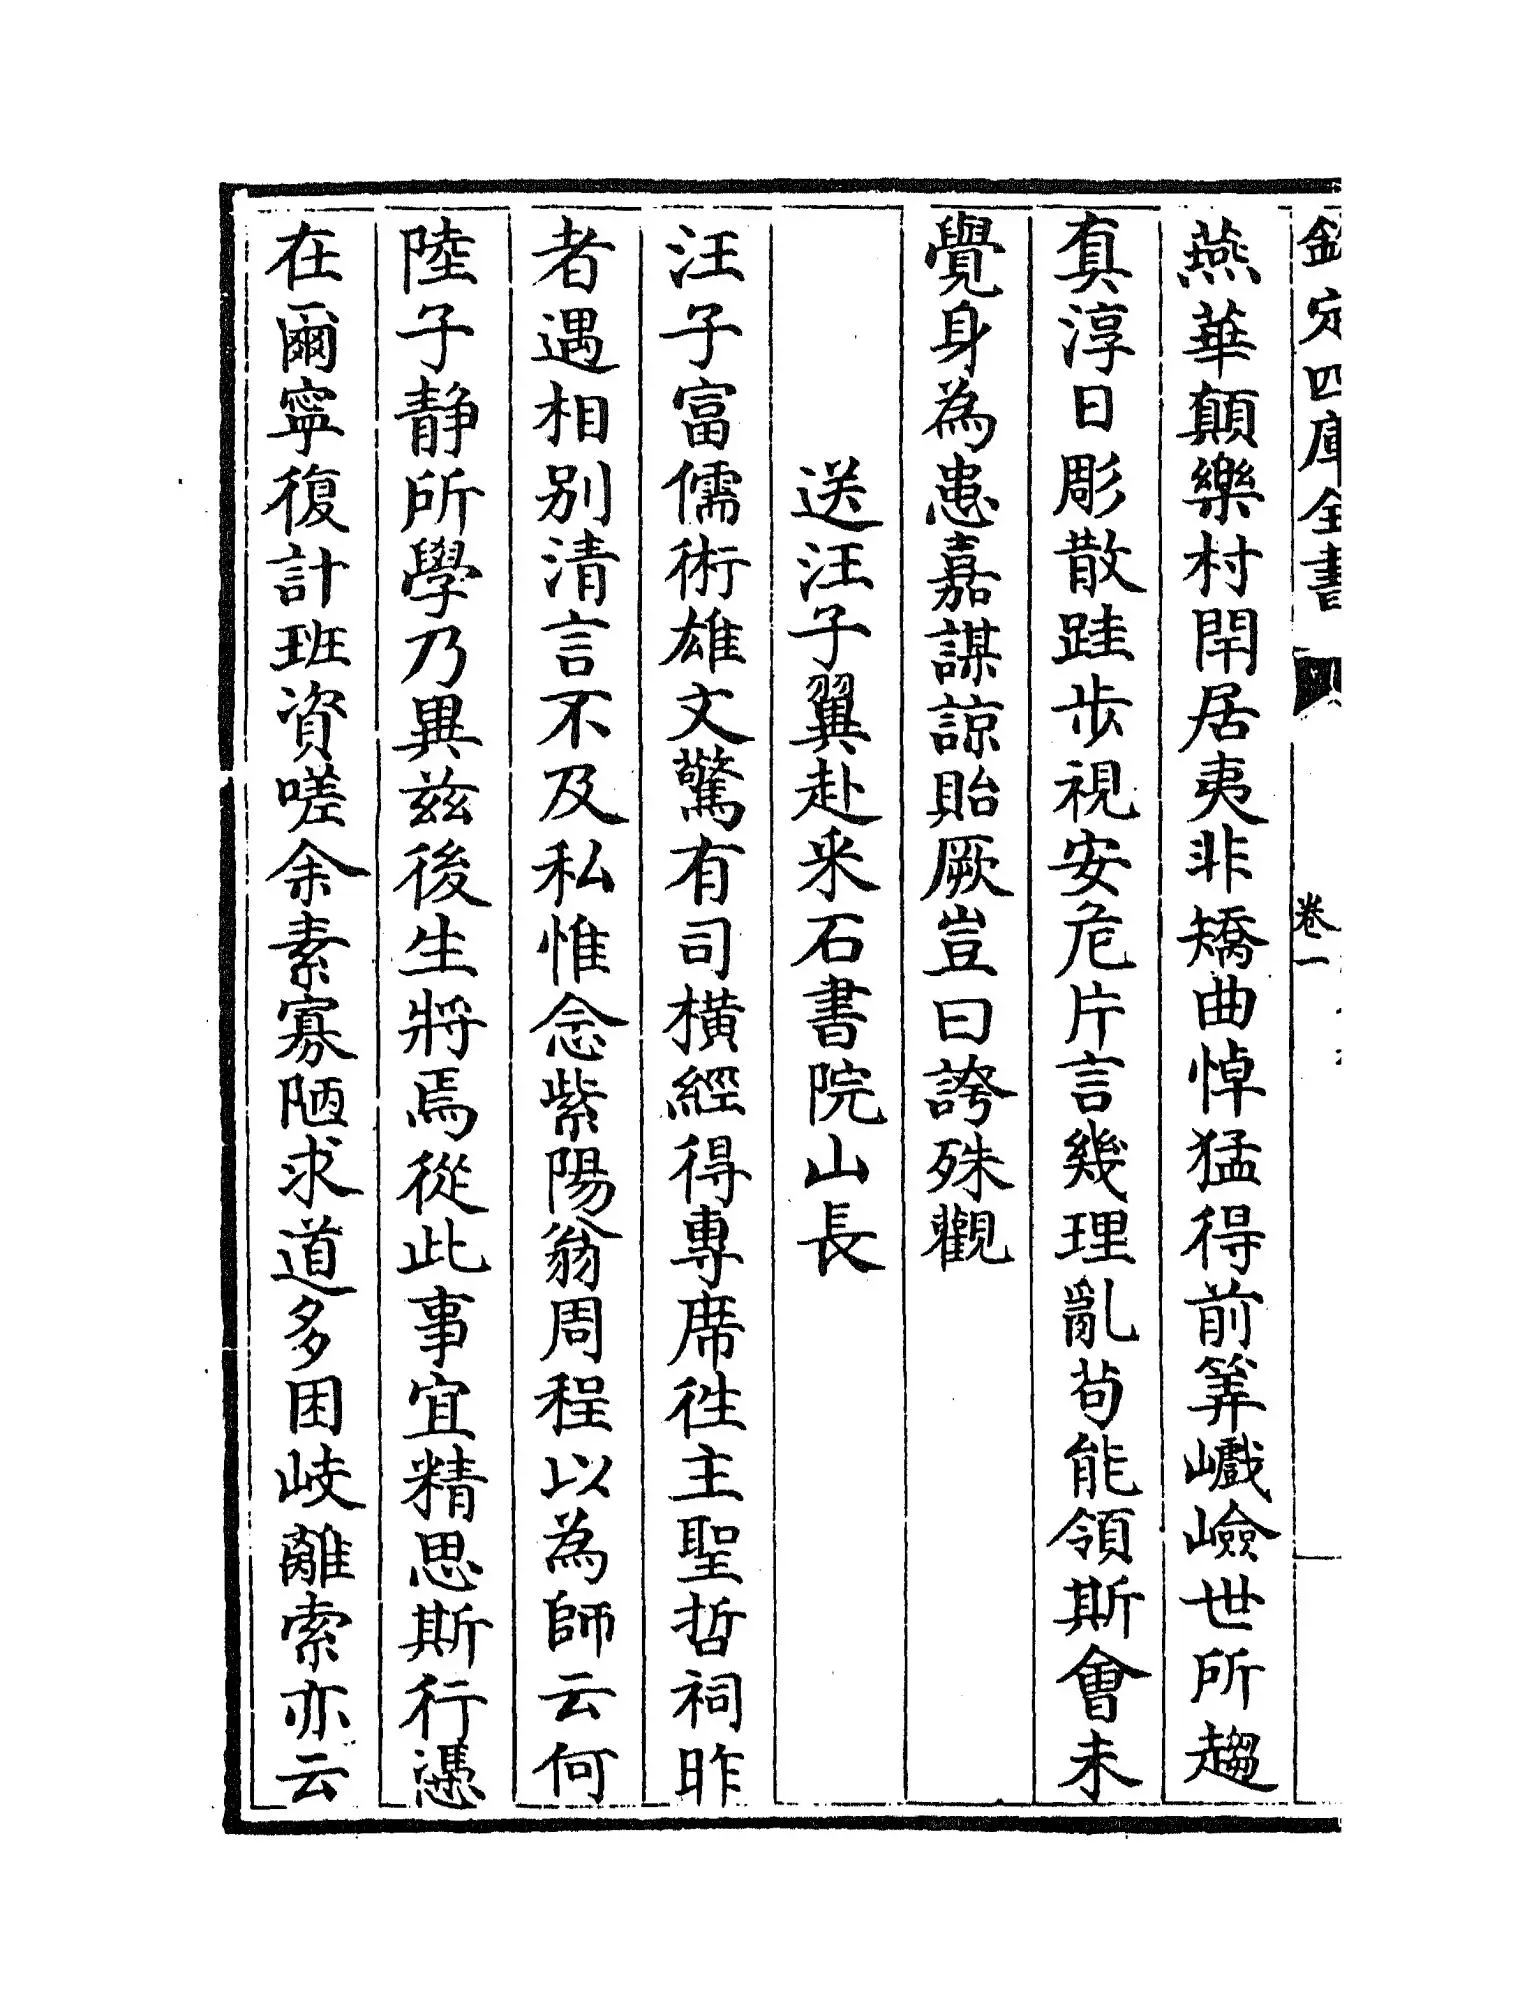 欽定四庫全書
卷一
燕華顛樂村閈居夷非矯曲悼猛得前筭巇嶮世所趨
真淳日彫散跬步視安危片言幾理亂茍能領斯會未
覺身為患嘉謀諒貽厥豈曰誇殊觀
送汪子翼赴采石書院山長
汪子富儒術雄文驚有司橫經得專席徃主聖哲祠昨
者遇相别清言不及私惟念紫陽翁周程以為師云何
陸子静所學乃異兹後生將焉從此事宜精思斯行慿
在爾寧復計班資嗟余素寡陋求道多困岐離索亦云